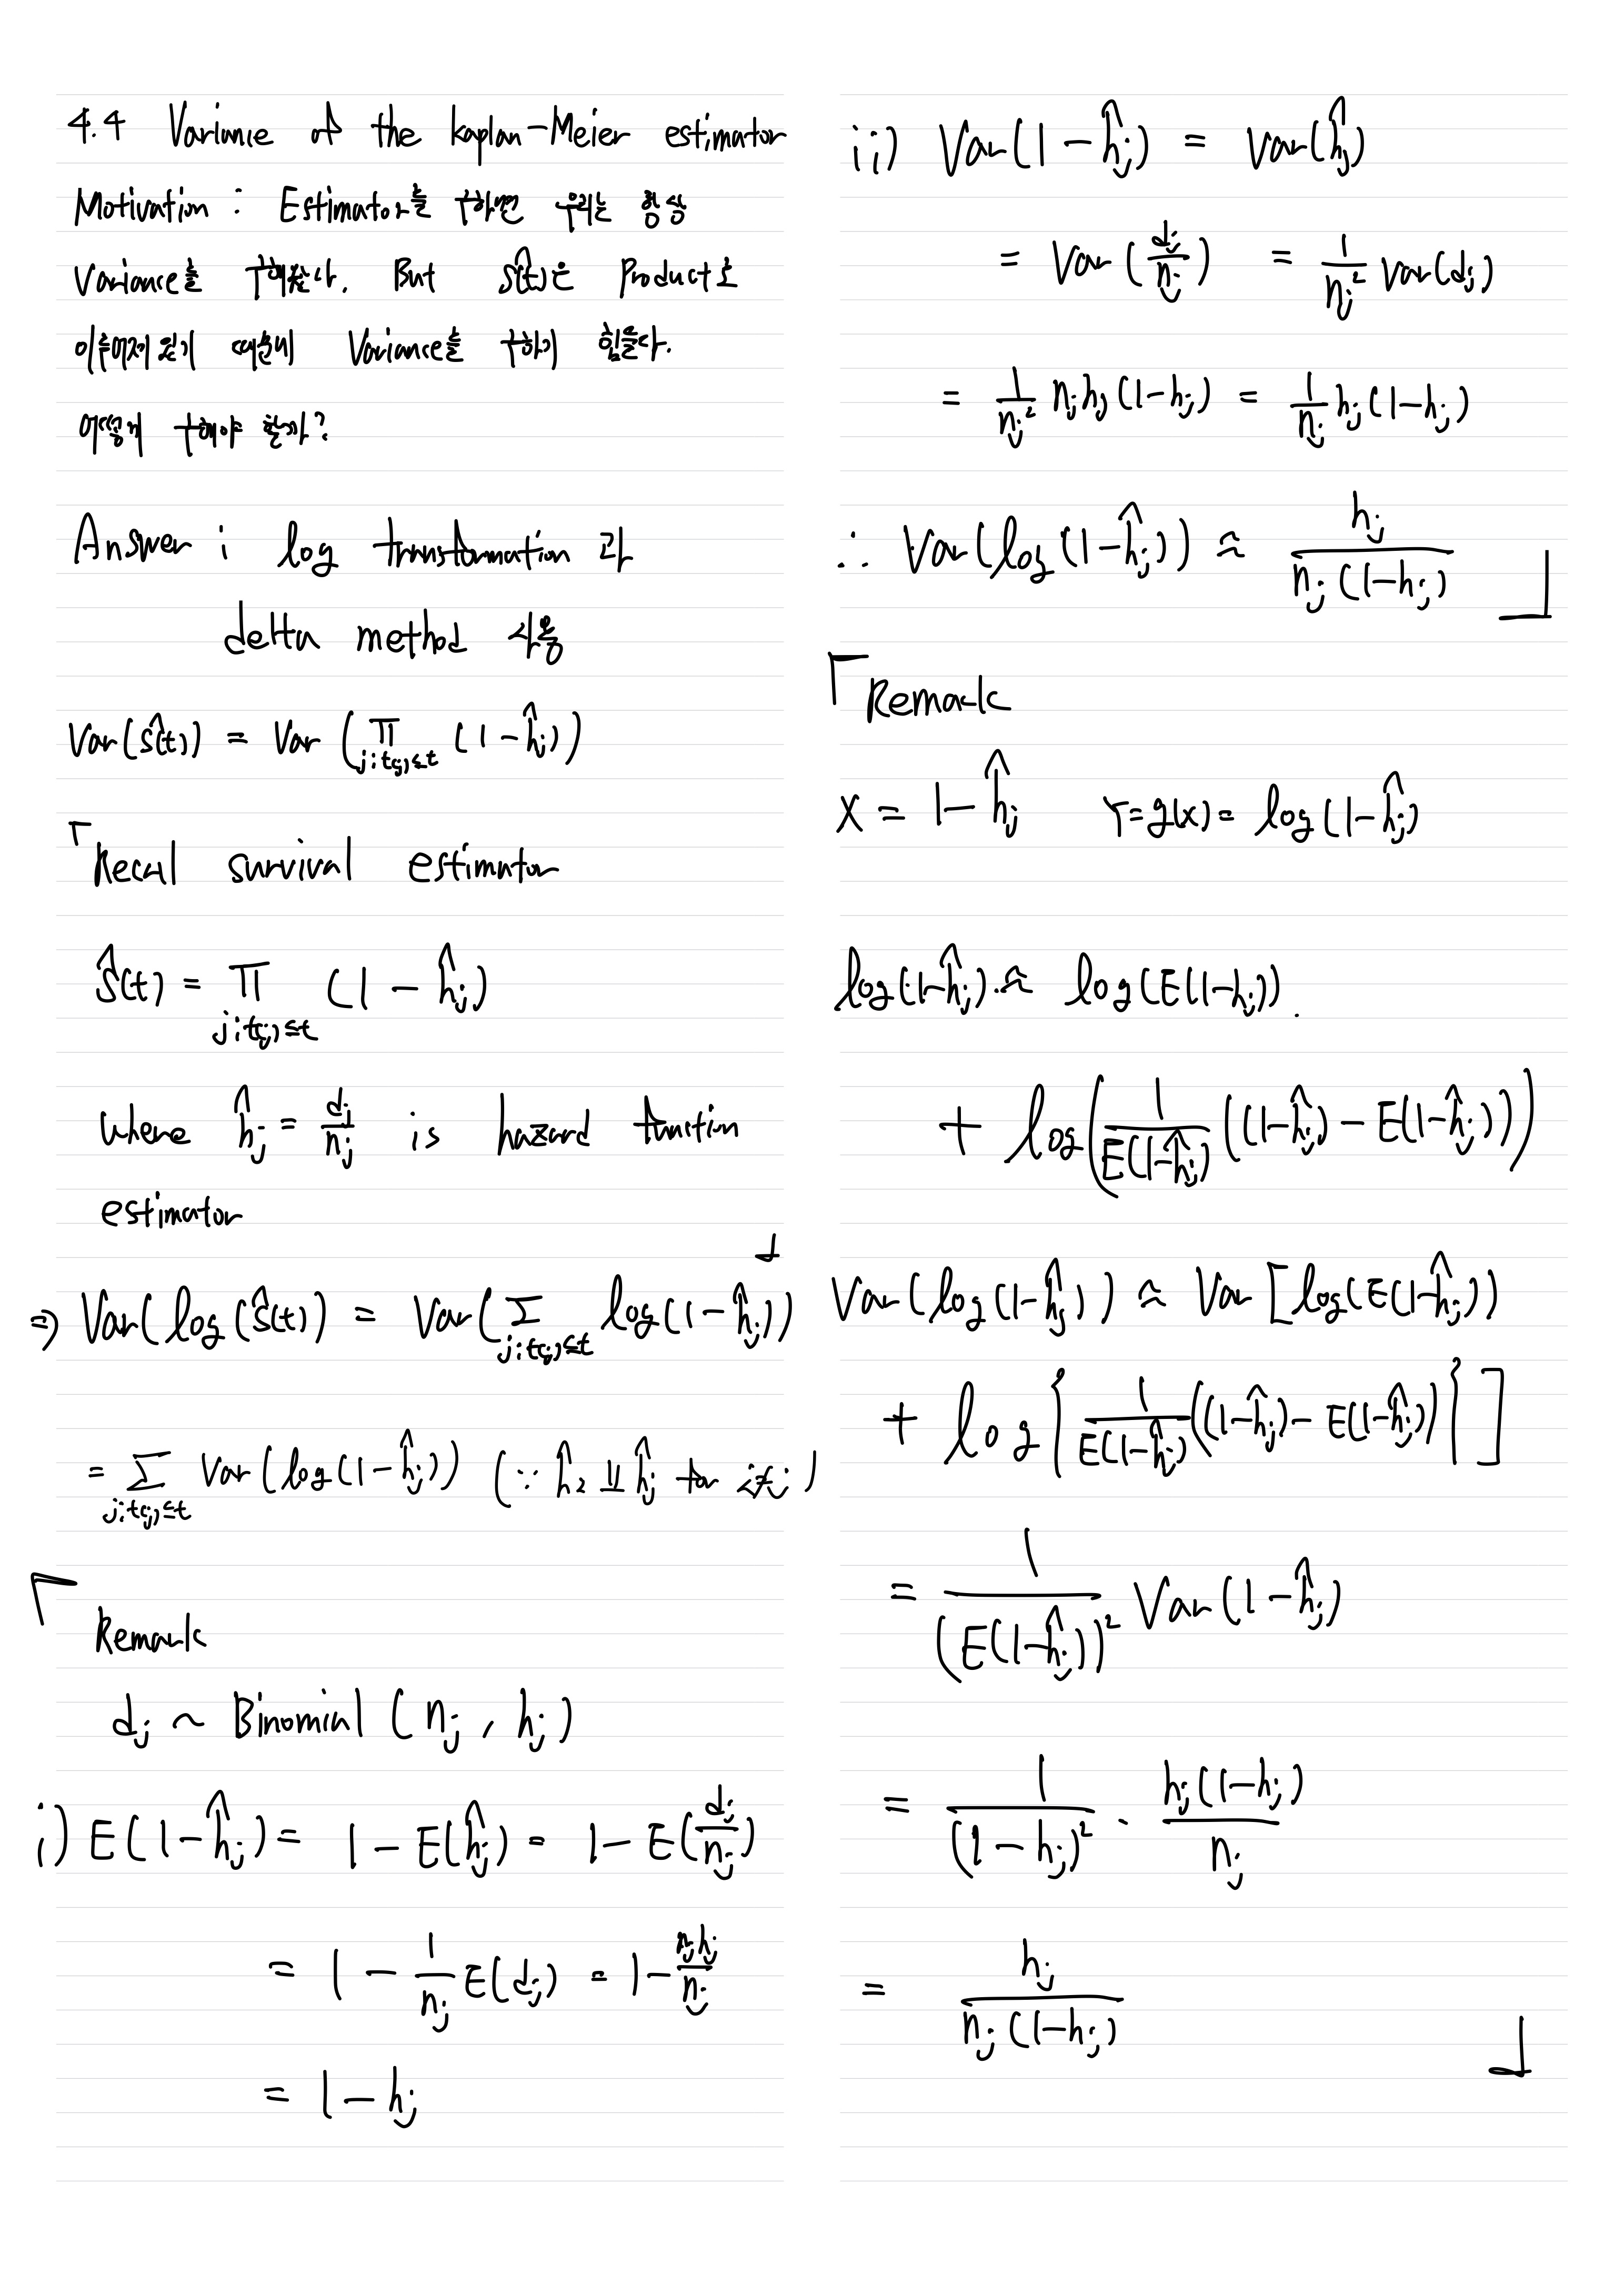 4.4 Variance of the Kaplan-Meier estimator
Motivation : Estimator를 구하면 우리는 항상
Variance를 구해왔다. But Ŝ(t)은 Product로
이루어져있기 때문에 Variance를 구하기 힘들다.
어떻게 구해야 할까?
Answer ; log transformation 과
delta method 사용
Var(Ŝ(t)) = Var(∏_{j:t(j)≤t} (1-ĥj))
「Recall survival estimator
Ŝ(t) = ∏_{j:t(j)≤t} (1 - ĥj)
where ĥj = dj/nj is hazard function
estimator
」
⇒) Var(log(Ŝ(t)) = Var(∑_{j:t(j)≤t} log(1-ĥj))
= ∑_{j:t(j)≤t} Var(log(1-ĥj)) (∵ ĥi ⫫ ĥj for i≠j)
「Remark
dj ~ Binomial (nj, hj)
i) E(1-ĥj) = 1 - E(ĥj) = 1 - E(dj/nj)
= 1 - 1/nj E(dj) = 1 - njhj/nj
= 1 - hj
ii) Var(1-ĥj) = Var(ĥj)
= Var(dj/nj) = 1/nj² Var(dj)
= 1/nj² nj hj(1-hj) = 1/nj hj(1-hj)
∴ Var(log(1-ĥj)) ≈ hj/(nj(1-hj)) 」
「Remark
X = 1-ĥj Y=g(x)= log(1-ĥj)
log(1-ĥj) ≈ log(E(1-hj)).
+ log(1/E(1-ĥj) ((1-ĥj) - E(1-ĥj)))
Var(log(1-ĥj)) ≈ Var[log(E(1-ĥj))
+ log{1/E(1-ĥj) ((1-ĥj) - E(1-ĥj))}]
= 1/(E(1-ĥj))² Var(1-ĥj)
= 1/(1-hj)² · hj(1-hj)/nj
= hj/(nj(1-hj))
」